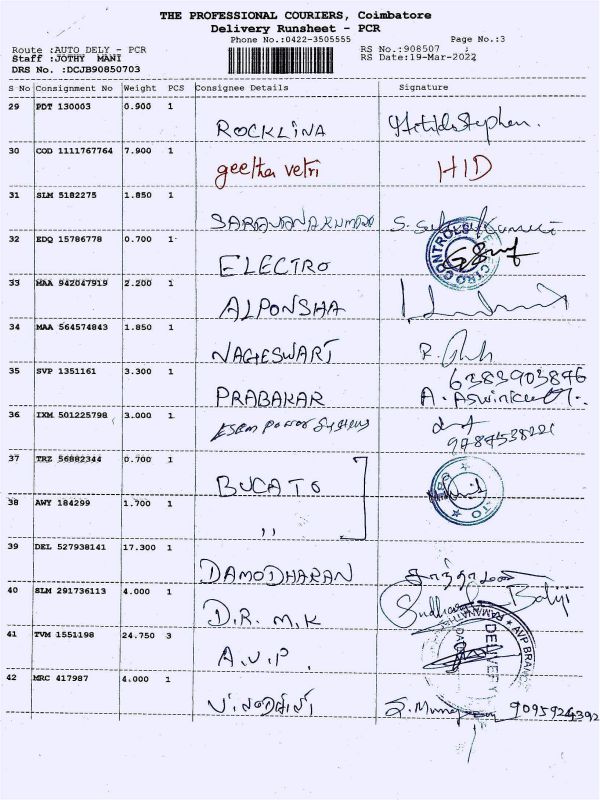 THE PROFESSIONAL COURIERS, Coimbatore
Delivery Runsheet - PCR
Phone No.:0422-3505555 Page No.:3
Route :AUTO DELY - PCR RS No.:908507
Staff :JOTHY MANI RS Date:19-Mar-2022
DRS No. :DCJB90850703
S No Consignment No Weight PCS Consignee Details Signature
29 PDT 130003 0.900 1
ROCKLINA Stephen.
30 COD 1111767764 7.900 1
geetha vetri HID
31 SLM 5182275 1.850 1
SARAVANAKUMAR S.
32 EDQ 15786778 0.700 1
ELECTRO
33 MAA 942047919 2.200 1
ALPONSHA
34 MAA 564574843 1.850 1
NAGESWARI R.
35 SVP 1351161 3.300 1
6383903846
PRABAKAR A.
36 IXM 501225798 3.000 1
Power Systems
37 TRZ 56882344 0.700 1
BUCATO
38 AWY 184299 1.700 1
,,
39 DEL 527938141 17.300 1
DAMODHARAN
40 SLM 291736113 4.000 1
D.R.M.K
41 TVM 1551198 24.750 3
AVP BRANCH
DELIVERY
A.V.P.
42 MRC 417987 4.000 1
VINODHINI 9095924392